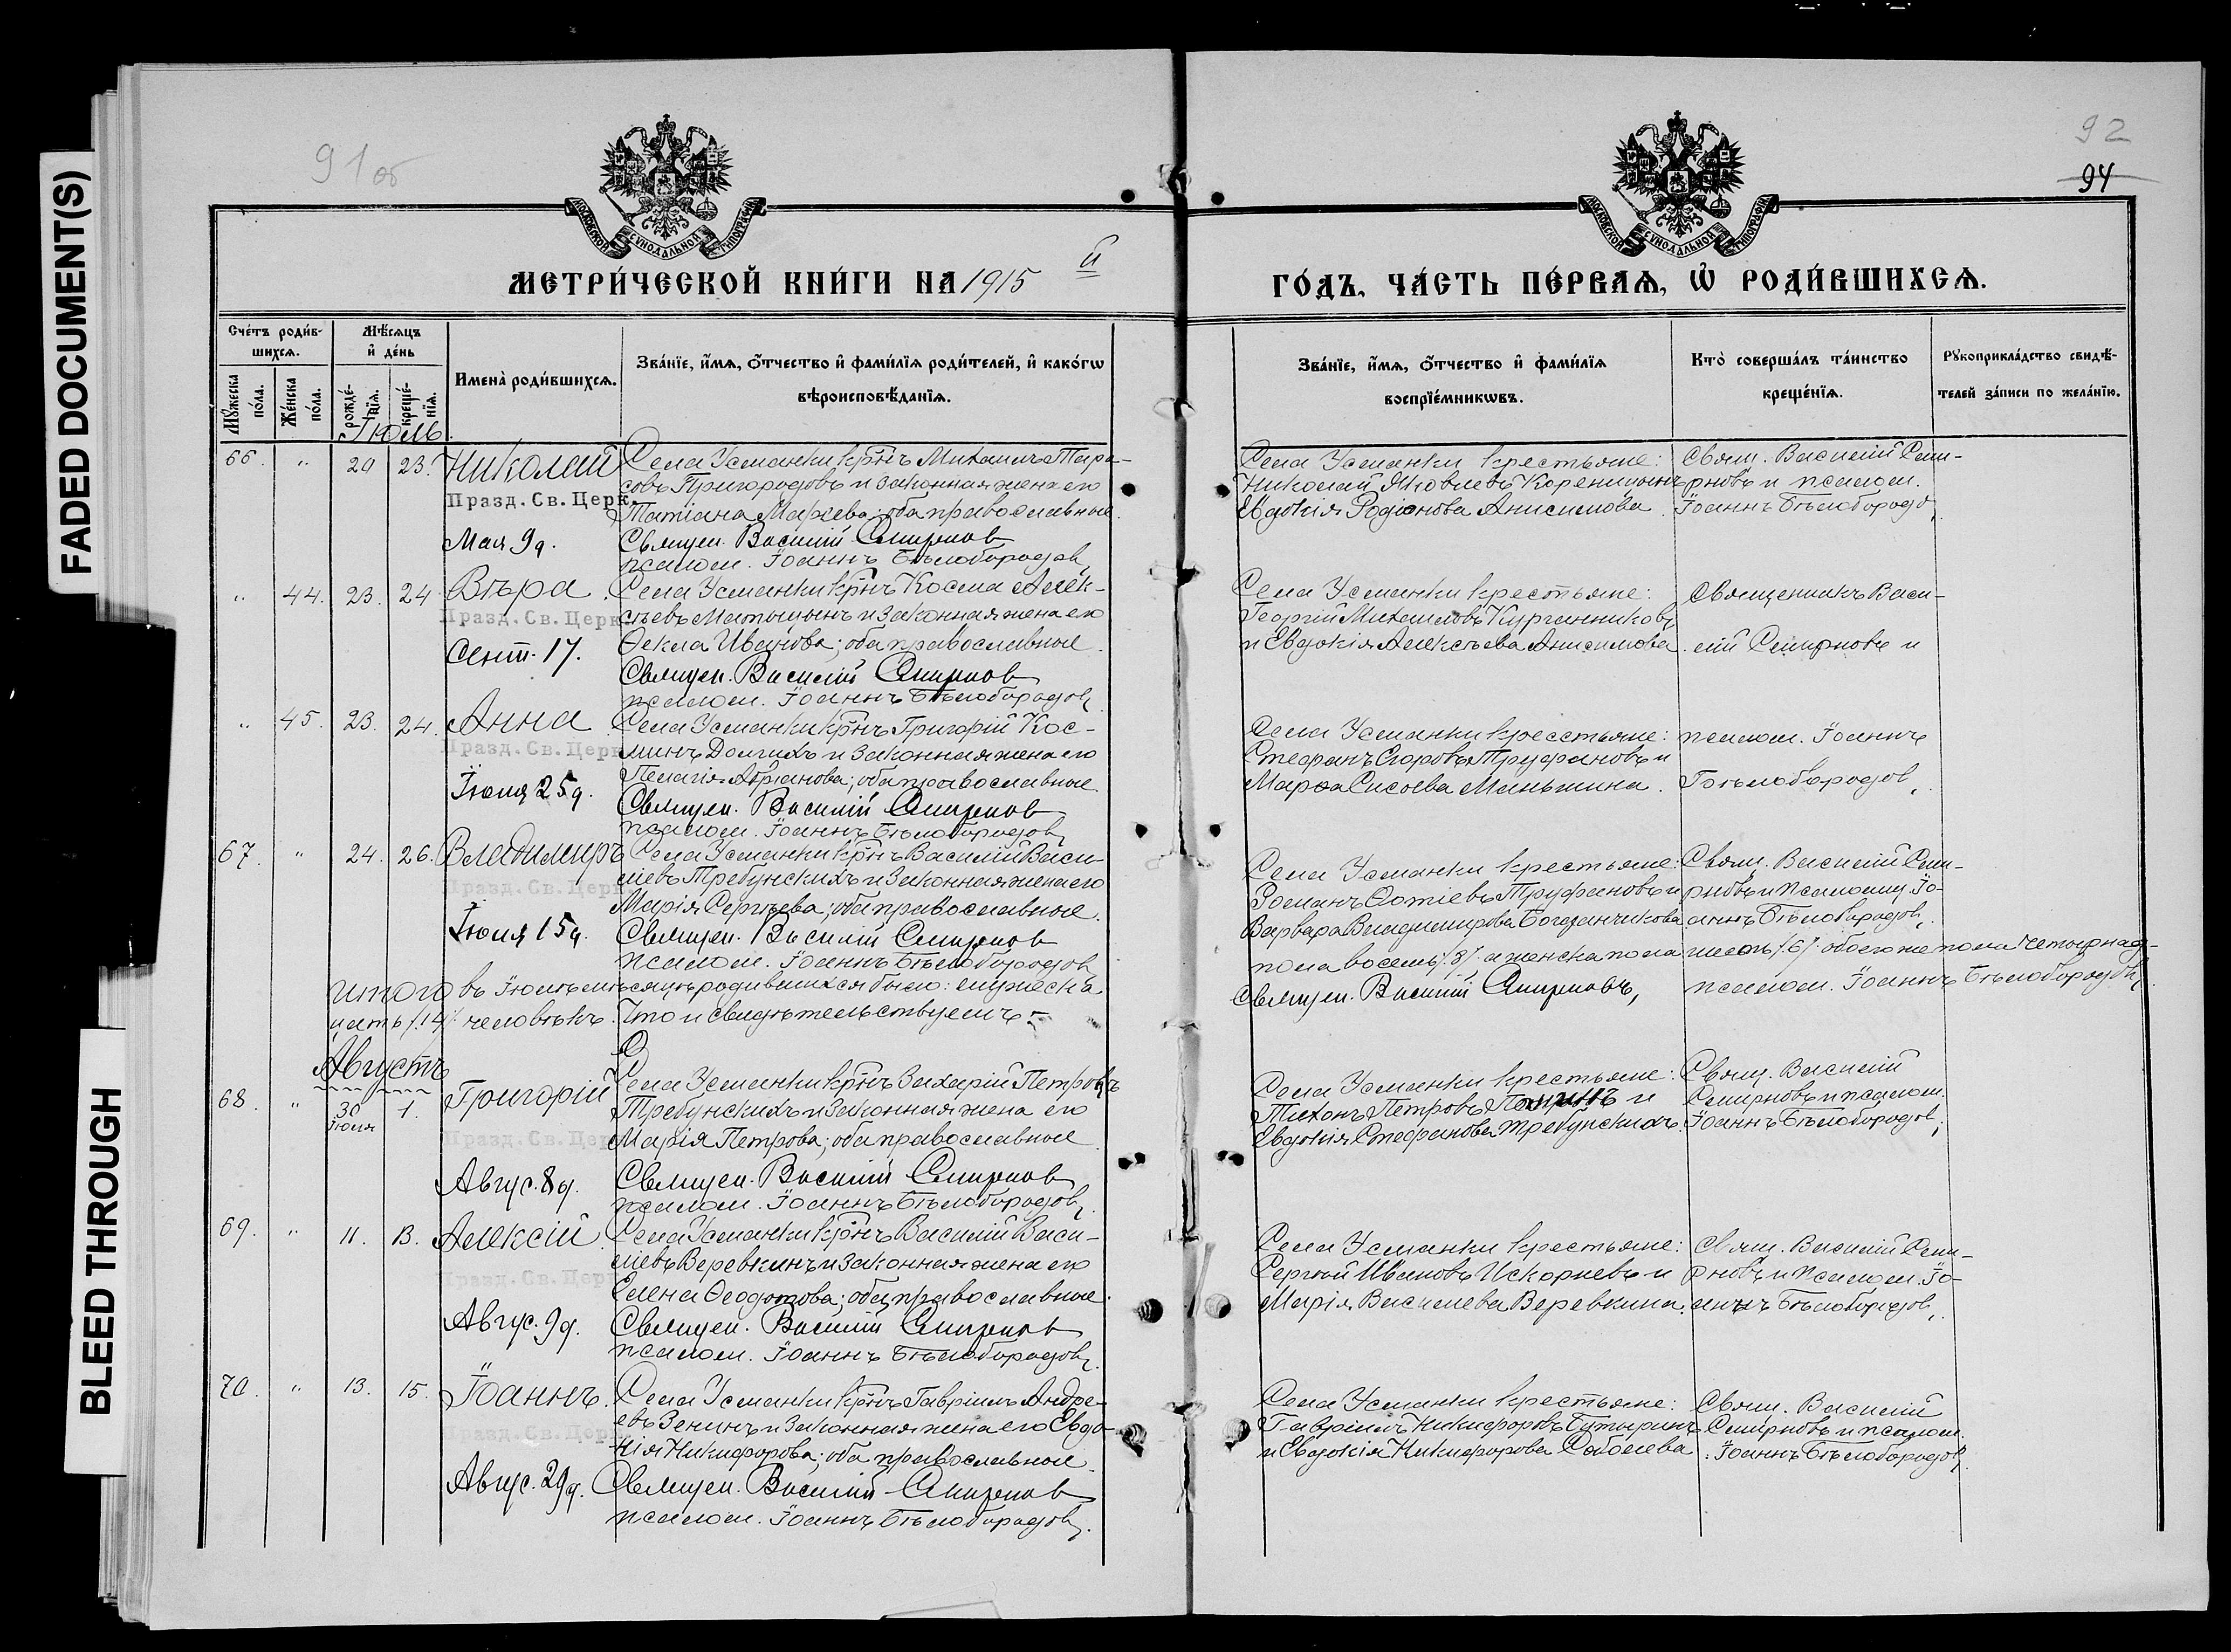 FADED DOCUMENT(S)
BLEED THROUGH
91 об
92
94
МОСКОВСКОЙ СѴНОДАЛЬНОЙ ТИПОГРАФІИ
МОСКОВСКОЙ СѴНОДАЛЬНОЙ ТИПОГРАФІИ
МЕТРИ́ЧЕСКОЙ КНИ́ГИ НА 1915 й
ГО́ДЪ, ЧА́СТЬ ПЕ́РВАѦ, Ѽ РОДИ́ВШИХСѦ.
Сче́тъ роди́в-
шихсѧ.
Мꙋ́жеска по́ла.
Же́нска по́ла.
Мѣ́сѧцъ
и҆ де́нь
рожде́-нїѧ.
креще́-нїѧ.
Имена̀ роди́вшихсѧ.
Зва́нїе, и҆́мѧ, о҆́тчество и҆ фами́лїѧ роди́телей, и҆ како́гѡ
вѣроисповѣ́данїѧ.
Зва́нїе, и҆́мѧ, о҆́тчество и҆ фами́лїѧ
воспрїе́мникѡвъ.
Кто̀ соверша́лъ та́инство
креще́нїѧ.
Рꙋкоприкла́дство свидѣ́-
телей за́писи по жела́нїю.
Іюль.
66. " 20 23. Николай
Празд. Св. Церк.
Мая 9 д.
Села Усманки кр̃нъ Михаилъ Тара-
совъ Пригородовъ и законная жена его
Татіана Маркева; оба православные.
Священ. Василій Смирнов
псалом. Іоаннъ Бѣлобородовъ.
Села Усманки крестьяне:
Николай Яковлевъ Кореницынъ
Евдокія Родіонова Анисимова.
Свящ. Василій Сми-
рновъ и псалом.
Іоаннъ Бѣлобородо
" 44. 23. 24 Вѣра.
Празд. Св. Церк.
Сент. 17.
Села Усманки кр̃нъ Косма Алек-
сѣевъ Матыцынъ и законная жена его
Ѳекла Иванова; оба православные.
Священ. Василій Смирнов
псалом. Іоаннъ Бѣлобородовъ.
Села Усманки крестьяне:
Георгій Михаиловъ Курганниковъ
и Евдокія Алексѣева Анисимова.
Священникъ Васи-
лій Смирновъ и
" 45. 23. 24. Анна.
Празд. Св. Церк.
Іюля 25 д.
Села Усманки кр̃нъ Григорій Кос-
минъ Долгихъ и законная жена его
Пелагія Абрамова; оба православные.
Священ. Василій Смирнов
псалом. Іоаннъ Бѣлобородовъ
Села Усманки кресстьяне:
Стефанъ Егоровъ Труфановъ и
Марѳа Сисоева Манькина.
псалом. Іоаннъ
Бѣлобородов.
67. " 24. 26. Владиміръ
Празд. Св. Церк.
Іюля 15 д.
Села Усманки кр̃нъ Василій Васи-
ліевъ Требунскихъ и законная жена его
Марія Сергѣева; оба православные.
Священ. Василій Смирнов
псалом. Іоаннъ Бѣлобородовъ
Села Усманки крестьяне:
Романъ Фотіевъ Труфановъ и
Варвара Владимирова Богданчикова
Свящ. Василій Сми-
рновъ и псаломщ. Іо-
аннъ Бѣлобородов.
Итого въ Іюлѣ мѣсяцѣ родившихся было: мужеска
пола восемь /8/. а женска пола шесть /6/. обоего же пола четырнад-
цать /14/ человѣкъ. Что и свидѣтельствуемъ
Священ. Василій Смирновъ,
псалом. Іоаннъ Бѣлобородовъ.
Августъ
68. " 30 Іюля 1. Григорій
Празд. Св. Церк.
Авгус. 8 д.
Села Усманки кр̃нъ Захарій Петровъ
Требунскихъ и законная жена его
Марія Петрова; оба православные.
Священ. Василій Смирнов
псалом. Іоаннъ Бѣлобородовъ.
Села Усманки крестьяне:
Тихонъ Петровъ и
Евдокія Стефанова Требунскихъ.
Свящ. Василій
Смирновъ и псалом.
Іоаннъ Бѣлобородов.
69. " 11. 13. Алексій.
Празд. Св. Церк.
Авгус. 9 д.
Села Усманки кр̃нъ Василій Васи-
ліевъ Веревкинъ и законная жена его
Елена Ѳеодотова; оба православные.
Священ. Василій Смирнов
псалом. Іоаннъ Бѣлобородовъ.
Села Усманки крестьяне:
Сергей Ивановъ Искорневъ и
Марія Васильева Веревкина.
Свящ. Василій Сми-
рновъ и псалом. Іо-
аннъ Бѣлобородов.
70. " 13. 15. Іоаннъ.
Празд. Св. Церк.
Авгус. 29 д.
Села Усманки кр̃нъ Гавріилъ Андре-
евъ Зенинъ и законная жена его Евдо-
кія Никифорова; оба православные.
Священ. Василій Смирнов
псалом. Іоаннъ Бѣлобородовъ.
Села Усманки крестьяне:
Гавріилъ Никифоровъ Бутыринъ
и Евдокія Никифорова Соболева.
Свящ. Василій
Смирновъ и псалом.
Іоаннъ Бѣлобородовъ.